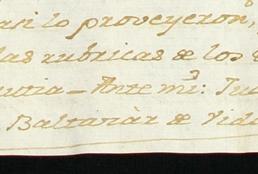 asi lo proveyeron,
las rubricas de los
Ante mi: Ju
Baltasàr de Vid